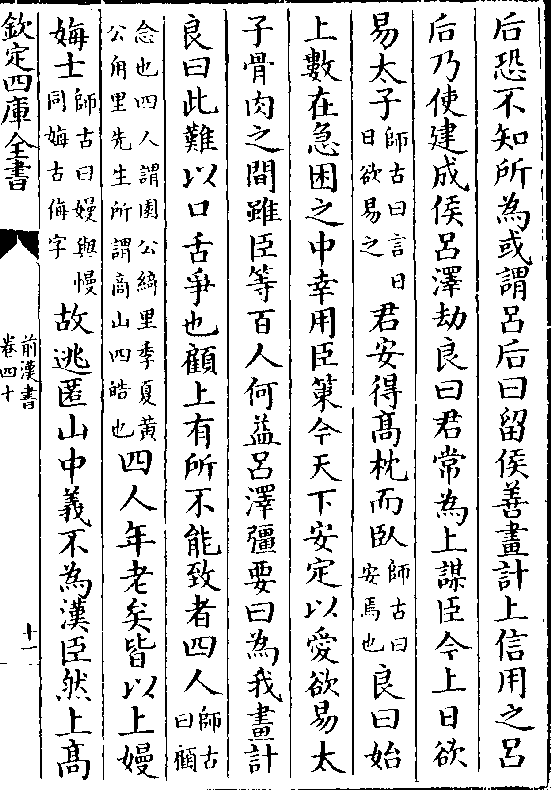 后恐不知所為或謂呂后曰留侯善畫計上信用之呂
后乃使建成侯呂澤劫良曰君常為上謀臣今上日欲
易太子師古曰言日日欲易之君安得髙枕而臥師古曰安焉也良曰始
上數在急困之中幸用臣筞今天下安定以愛欲易太
子骨肉之間雖臣等百人何益呂澤彊要曰為我畫計
良曰此難以口舌爭也顧上有所不能致者四人師古曰顧
念也四人謂園公綺里季夏黃公甪里先生所謂商山四皓也四人年老矣皆以上嫚
娒士師古曰嫚與慢同娒古侮字故逃匿山中義不為漢臣然上髙
欽定四庫全書
前漢書
卷四十
十一